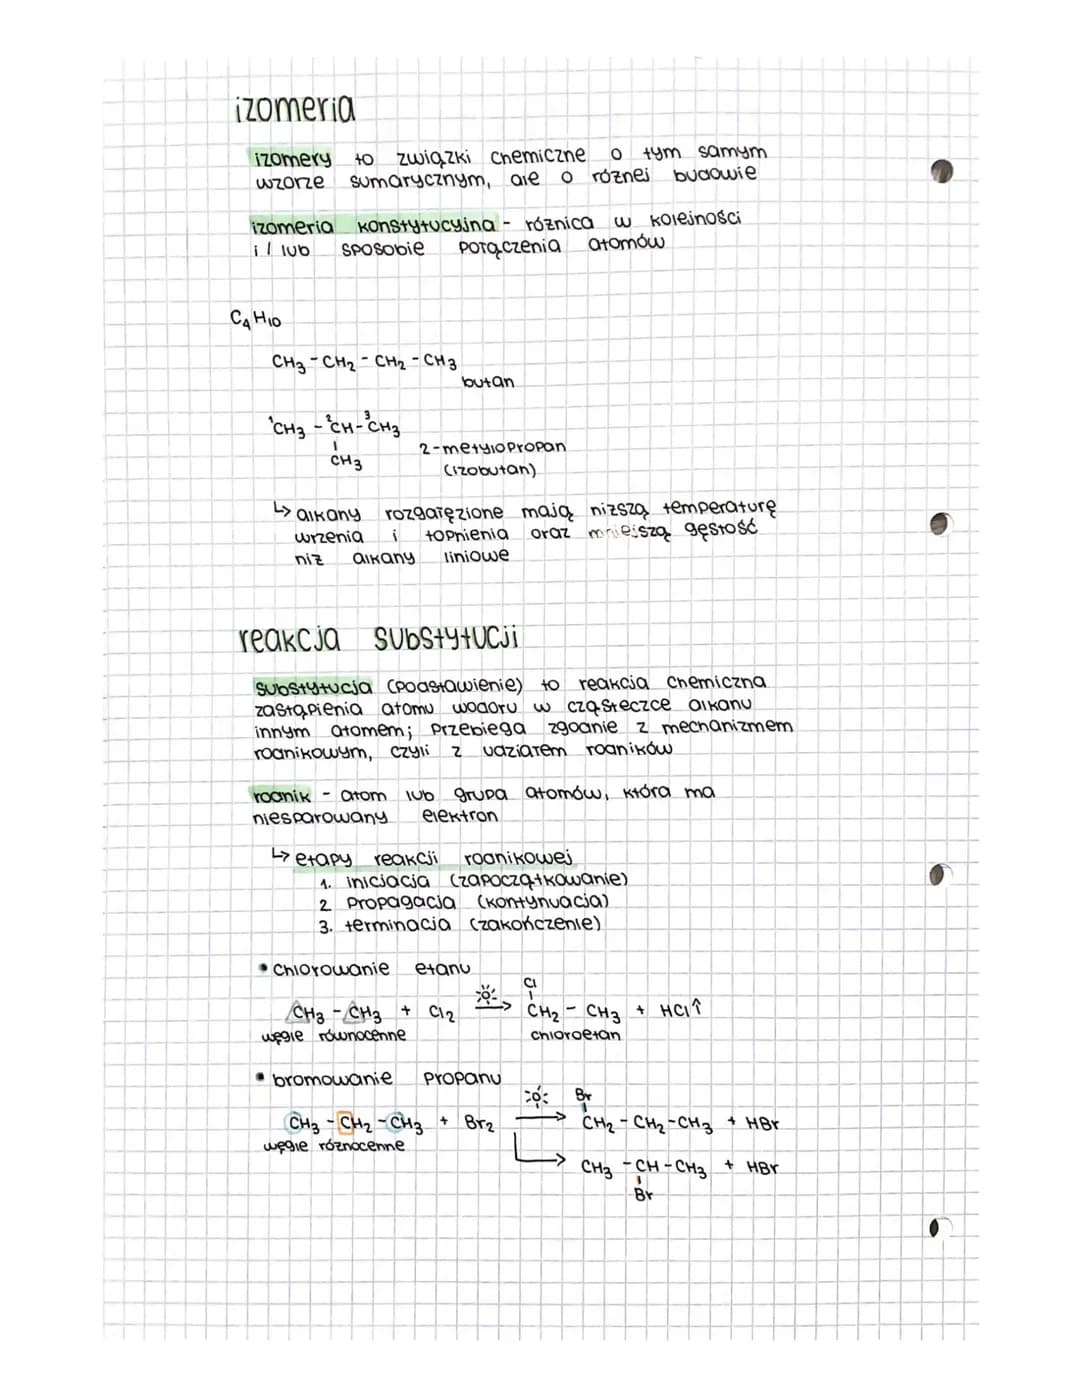 izomeria
izomery to związki chemiczne o tym samym
wzorze sumarycznym, ale o różnej budowie
izomeria konstytucyjna - różnica w kolejności
i / lub sposobie połączenia atomów
C₄H₁₀
CH₃ - CH₂ - CH₂ - CH₃
butan
¹CH₃ - ²CH - ³CH₃
CH₃
2-metylopropan
(izobutan)
↳ alkany rozgałęzione mają niższą temperaturę
wrzenia i topnienia oraz mniejszą gęstość
niż alkany liniowe
reakcja substytucji
substytucja (podstawienie) to reakcja chemiczna
zastąpienia atomu wodoru w cząsteczce alkanu
innym atomem; przebiega zgodnie z mechanizmem
rodnikowym, czyli z udziałem rodników
rodnik - atom lub grupa atomów, która ma
niesparowany elektron
↳ etapy reakcji rodnikowej
1. inicjacja (zapoczątkowanie)
2 propagacja (kontynuacja)
3. terminacja (zakończenie)
• chlorowanie etanu
Cl
CH₃ - CH₃ + Cl₂ → CH₂ - CH₃ + HCl↑
węgle równocenne chloroetan
• bromowanie propanu
Br
CH₃ - CH₂ - CH₃ + Br₂ → CH₂ - CH₂ - CH₃ + HBr
węgle różnocenne
→ CH₃ - CH - CH₃ + HBr
Br